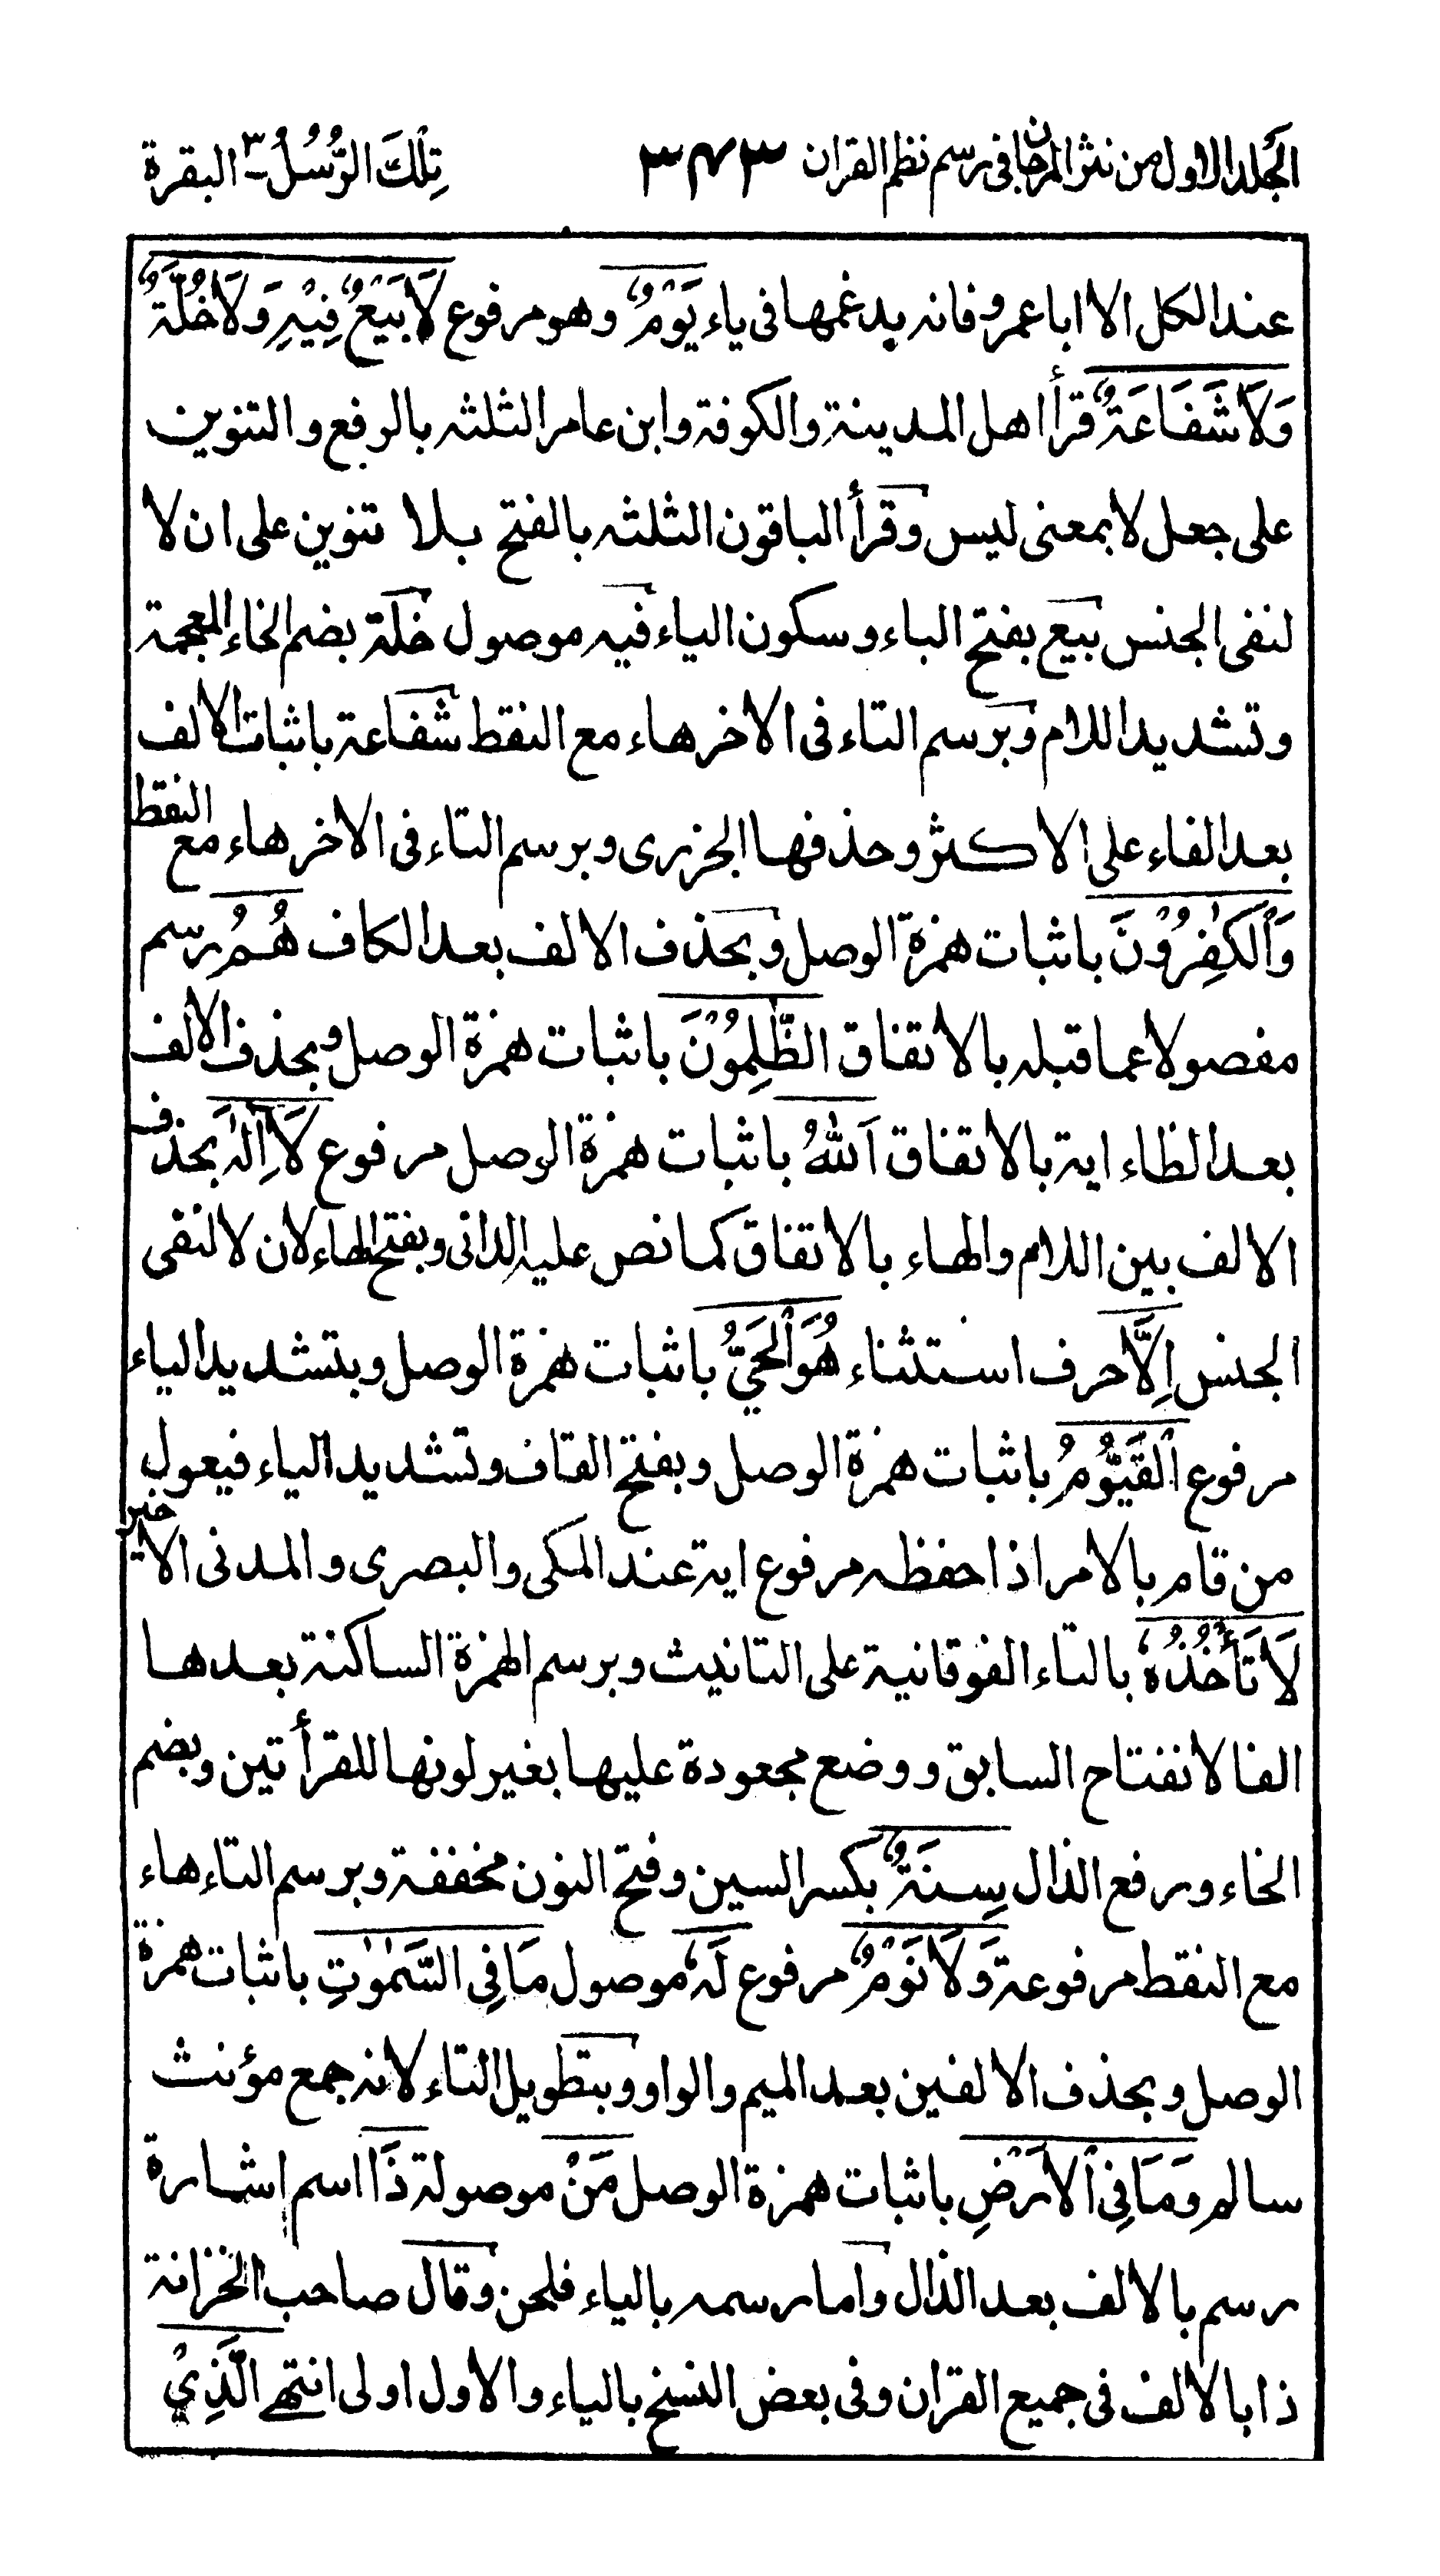 الجلد الاول من نثر المرجان فى رسم نظم القران ٣٤٣ تِلْكَ الرُّسُلُ ٣ - البقرة
عند الكل الا ابا عمرو فانه يدغمها فى ياء يَوْمٌ وهو مرفوع لَا بَيْعٌ فِيْهِ وَلَا خُلَّةٌ
وَلَا شَفَاعَةٌ قرأ اهل المدينة والكوفة وابن عامر الثلثه بالرفع والتنوين
على جعل لا بمعنى ليس وقرأ الباقون الثلثه بالفتح بلا تنوين على ان لا
لنفى الجنس بيع بفتح الباء وسكون الياء فيه موصول خلة بضم الخاء المعجمة
وتشديد اللام وبرسم التاء فى الاخر هاء مع النقط شفاعة باثبات الالف
بعد الفاء على الاكثر وحذفها الجزرى وبرسم التاء فى الاخر هاء مع النقط
وَٱلْكٰفِرُوْنَ باثبات همزة الوصل وبحذف الالف بعد الكاف هُمُ رسم
مفصولا عما قبله بالاتفاق الظّٰلِمُوْنَ باثبات همزة الوصل وبحذف الالف
بعد الظاء اية بالاتفاق اَللّٰهُ باثبات همزة الوصل مرفوع لَا اِلٰهَ بحذف
الالف بين اللام والهاء بالاتفاق كما نص عليه الدانى وبفتح الهاء لان لا لنفى
الجنس اِلَّا حرف استثناء هُوَ ٱلْحَيُّ باثبات همزة الوصل وبتشديد الياء
مرفوع ٱلْقَيُّوْمُ باثبات همزة الوصل وبفتح القاف وتشديد الياء فيعول
من قام بالامر اذا حفظه مرفوع اية عند المكى والبصرى والمدنى الاخير
لَا تَأْخُذُهٗ بالتاء الفوقانية على التانيث وبرسم الهمزة الساكنة بعدها
الفا لانفتاح السابق ووضع مجعودة عليها بغير لونها للقرأتين وبضم
الخاء ورفع الذال سِنَةٌ بكسر السين وفتح النون مخففة وبرسم التاء هاء
مع النقط مرفوعة وَلَا نَوْمٌ مرفوع لَهٗ موصول مَا فِى السَّمٰوٰتِ باثبات همزة
الوصل وبحذف الالفين بعد الميم والواو وبتطويل التاء لانه جمع مؤنث
سالم وَمَا فِى ٱلْاَرْضِ باثبات همزة الوصل مَنْ موصولة ذَا اسم اشارة
رسم بالالف بعد الذال واما رسمه بالياء فلحن وقال صاحب الخزانة
ذا بالالف فى جميع القران وفى بعض النسخ بالياء والاول اولى انتهى الَّذِيْ